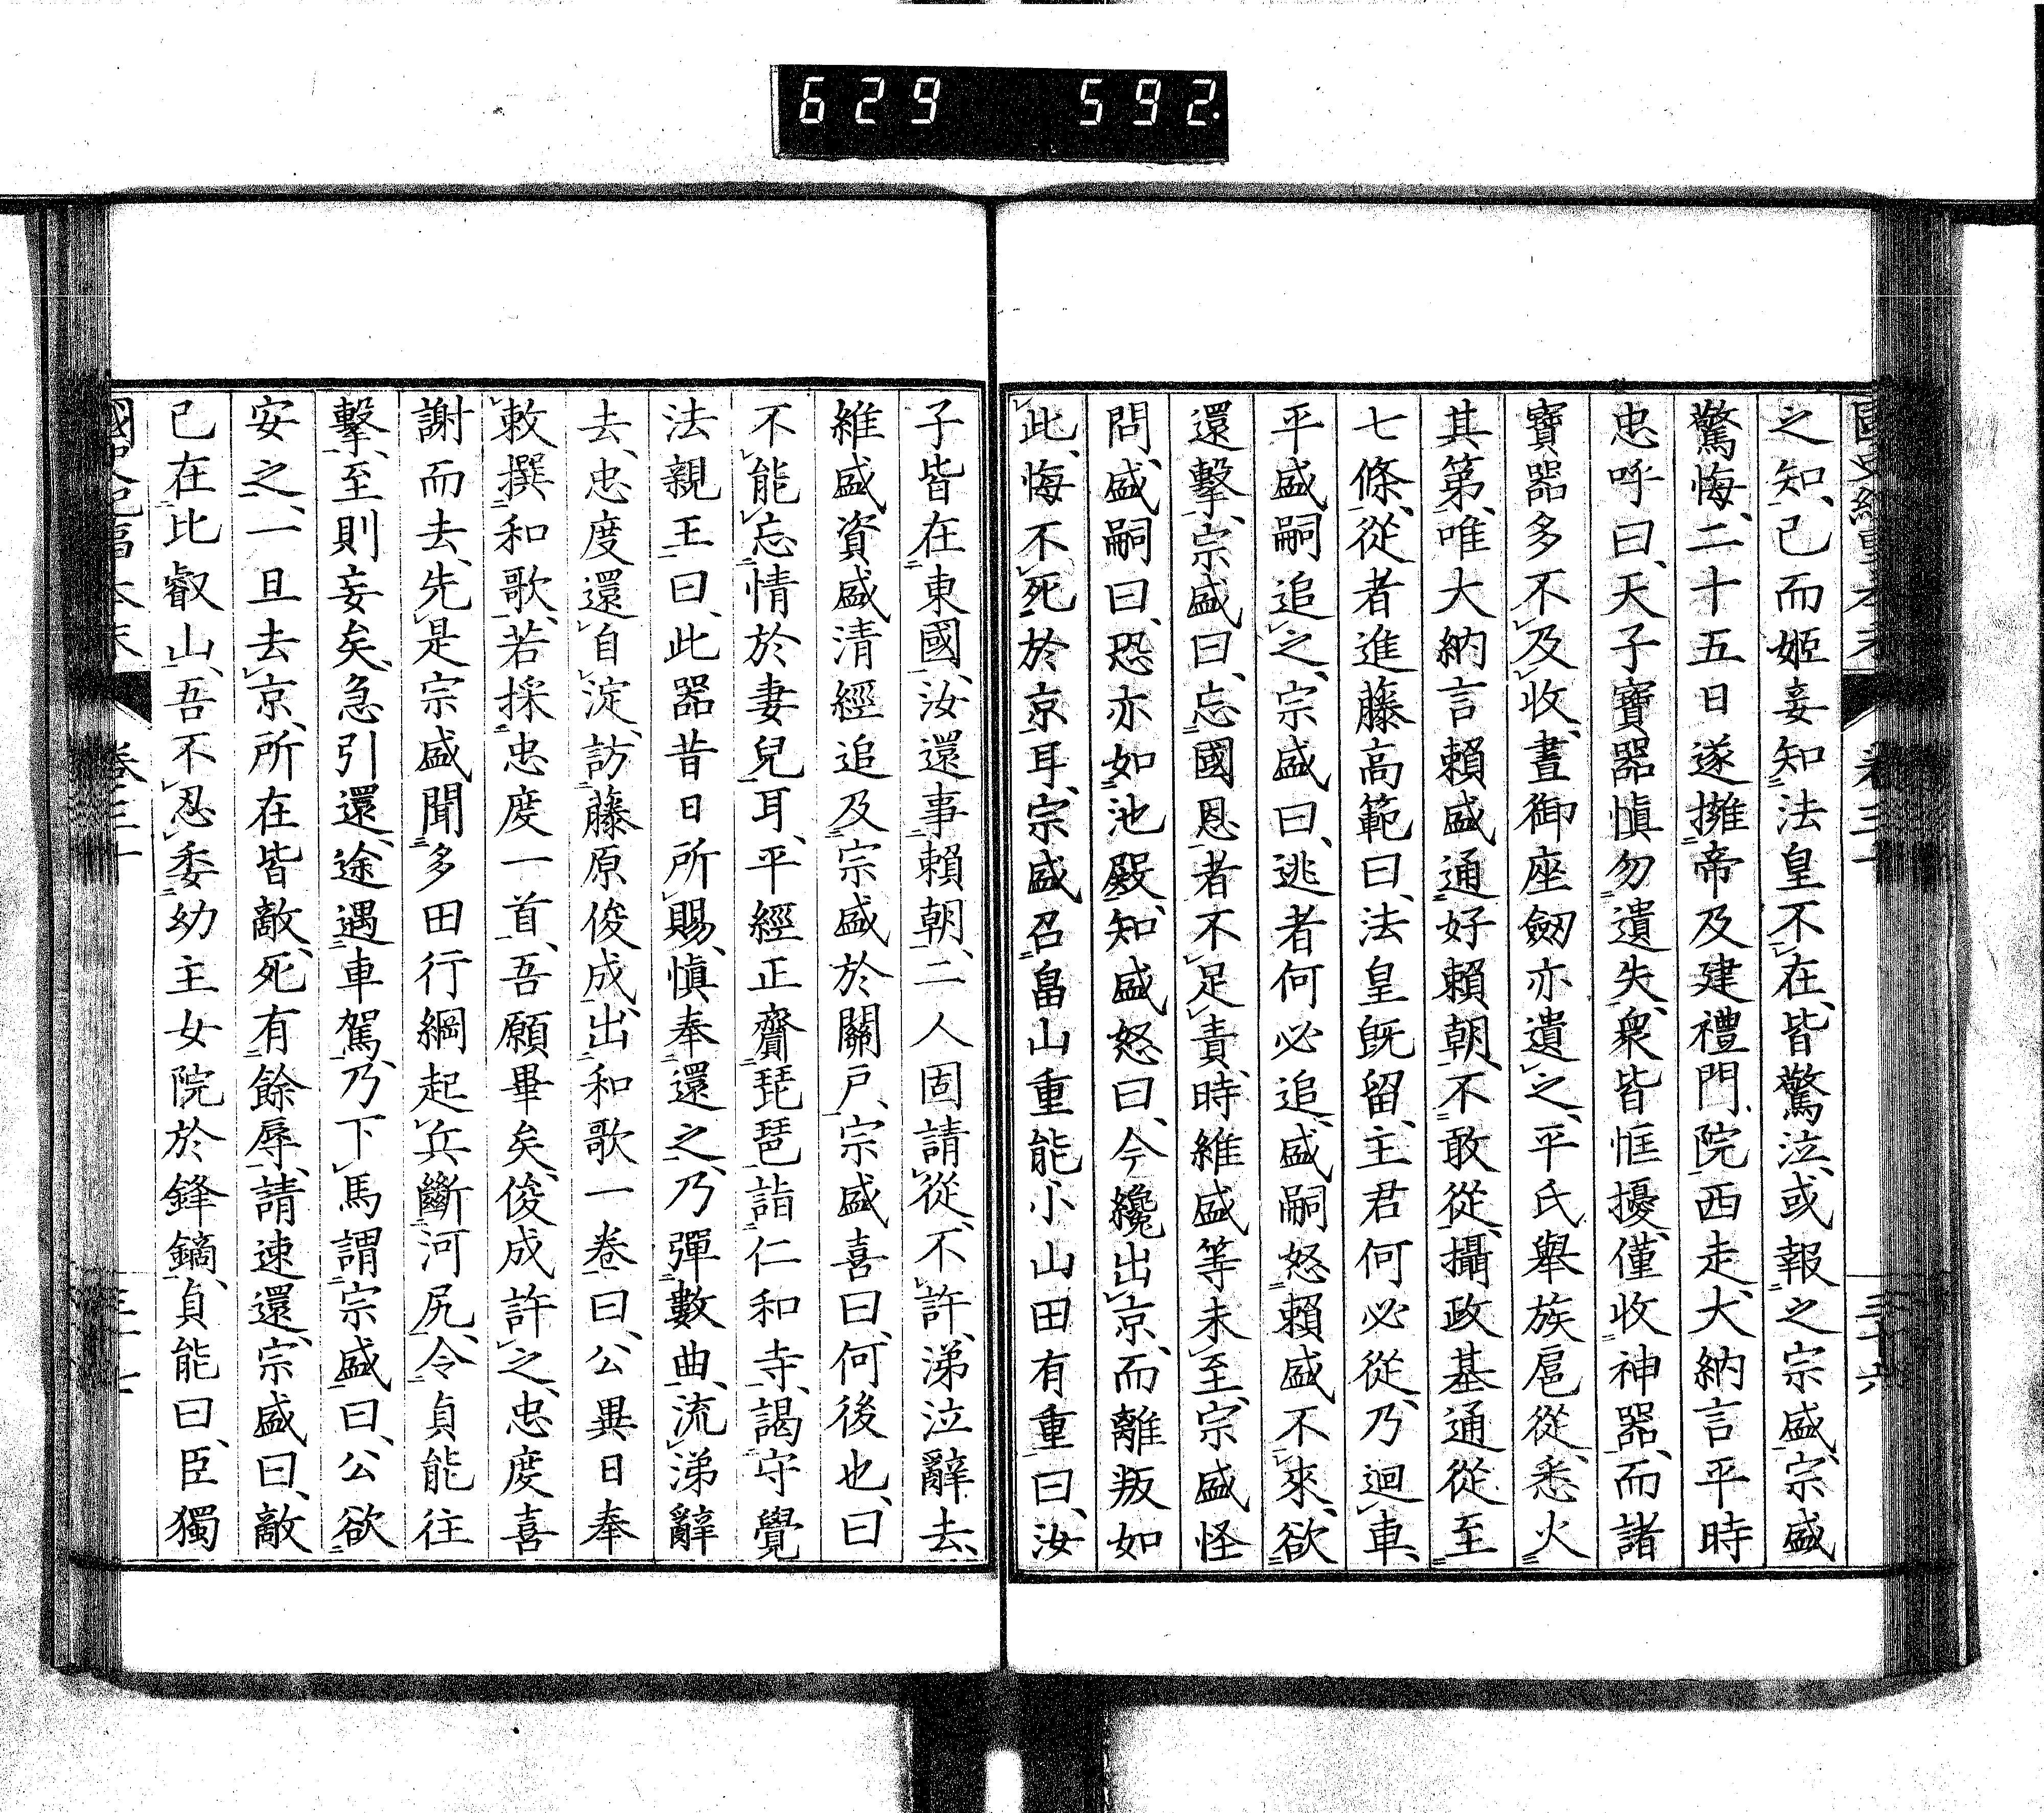 629 592.
之知、已而姬妾知法皇不在、皆驚泣、或報之宗盛、宗盛
驚悔、二十五日遂擁帝及建禮門院西走、大納言平時
忠呼曰、天子寶器愼勿遺失、衆皆恇擾、僅收神器、而諸
寶器多不及收、晝御座劒亦遺之、平氏舉族扈從、悉火
其第、唯大納言賴盛通好賴朝、不敢從、攝政基通從至
七條、從者進藤高範曰、法皇既留、主君何必從、乃迴車、
平盛嗣追之、宗盛曰、逃者何必追、盛嗣怒賴盛不來、欲
還擊、宗盛曰、忘國恩者不足責、時維盛等未至、宗盛怪
問、盛嗣曰、恐亦如池殿、知盛怒曰、今纔出京、而離叛如
此、悔不死於京耳、宗盛召畠山重能小山田有重曰、汝
子皆在東國、汝還事賴朝、二人固請從、不許、涕泣辭去、
維盛資盛清經追及宗盛於關戶、宗盛喜曰、何後也、曰
不能忘情於妻兒耳、平經正齎琵琶詣仁和寺、謁守覺
法親王曰、此器昔日所賜、愼奉還之、乃彈數曲、流涕辭
去、忠度還自淀、訪藤原俊成、出和歌一卷曰、公異日奉
敕撰和歌、若採忠度一首、吾願畢矣、俊成許之、忠度喜
謝而去、先是宗盛聞多田行綱起兵斷河尻、令貞能往
擊、至則妄矣、急引還、途遇車駕、乃下馬謂宗盛曰、公欲
安之、一旦去京、所在皆敵、死有餘辱、請速還、宗盛曰、敵
已在比叡山、吾不忍委幼主女院於鋒鏑、貞能曰、臣獨